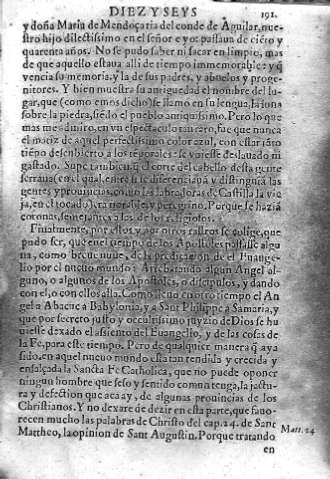 DIEZ Y SEYS 191.
y doña Maria de Mendoça tia del conde de Aguilar, nue-
stro hijo dilectissimo en el señor e yo: passaua de ciéto y
quarenta años. No se pudo saber ni sacar en limpio, mas
de que aquello estaua alli de tiempo immemorable: y q̃
vencia su memoria, y la de sus padres, y abuelos y proge-
nitores. Y bien muestra su antiguedad el nombre del lu-
gar, que (como emos dicho) se llamo en su lengua,
sobre la piedra, siédo el pueblo antiquissimo. Pero lo que
mas me admiro, en vn espectaculo tan raro, fue que nunca
el matiz de aquel perfectissimo color azul, con estar táto
tiépo descubierto a los se viesse deslauado ni
gastado. Supe tambien, q̃ el corte del cabello desta gente
serrana, en el qual, entre si se diferenciaua y distinguia las
gentes y prouincias, como las labradoras de Castilla la vie
ja, en el tocado, era notable, y peregrino. Porque se hazia
coronas, semejantes a las de los religiosos.
Finalmente, por estos y por otros rastros se colige, que
pudo ser, que en el tiempo de los Apostoles passasse algu
na, como breue nuue, de la predicacion de el Euange-
lio por el nueuo mundo: Arrebatando algun Angel al-
guno, o algunos de los Apostoles, o discipulos, y dando
con el, o con ellos alla. Como lleuo en otro tiempo el An
gel a Abacuc a Babylonia, y a Sant Philippe a Samaria, y
que por secreto justo y occultissimo juyzio de Dios se hu
uiesse dexado el assiento del Euangelio, y de las cosas de
la Fe, para este tiempo. Pero de qualquier manera q̃ aya
sido, en aquel nueuo mundo esta tan tendida y crecida y
ensalçada la Sancta Fe Catholica, que no puede oponer
ningun hombre que seso y sentido comun tenga, la jactu-
ra y defection que aca ay, de algunas prouincias de los
Christianos. Y no dexare de dezir en esta parte, que fauo-
recen mucho las palabras de Christo del cap. 24. de Sant
Mattheo, la opinion de Sant Augustin. Porque tratando
Matt. 24
en